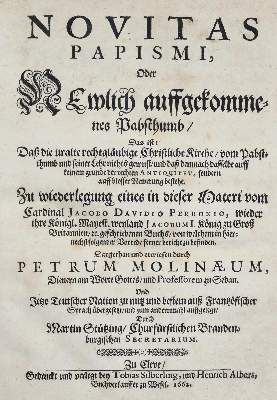 NOVITAS
PAPISMI,
Oder
Newlich auffgekomme-
nes Pabsthumb/
Das ist:
Daß die uralte rechtgläubige Christliche Kirche/ vom Pabst-
thumb und seiner Lehr nichts gewust und daß dannach dasselbe auff
keinem grunde der rechten ANTIQUITET, sondern
auff blosser Newrung bestehe.
Zu wiederlegung eines in dieser Materi vom
Cardinal JACOBO DAVIDEO PERRONIO, wieder
ihre Königl. Mayest. weyland JACOBUM I. König zu Groß
Britannien/ geschriebenen Buchs, von welchem in hier-
nechstfolgender Vorrede ferner bericht zu befinden.
Dargethan und erwiesen durch
PETRUM MOLINÆUM,
Dienern am Worte Gottes/ und Professorem zu Sedan.
Und
Jetzo Teutscher Nation zu nutz und bestem auß Frantzösischer
Sprach übergesetzt/ und zum andernmahl auffgelegt/
Durch
Martin Stützing/ Churfürstlichen Branden-
burgischen SECRETARIUM.
Zu Cleve/
Gedruckt und verlegt bey Tobias Silberling, und Henrich Albers,
Buchverkauffer zu Wesel. 1662.